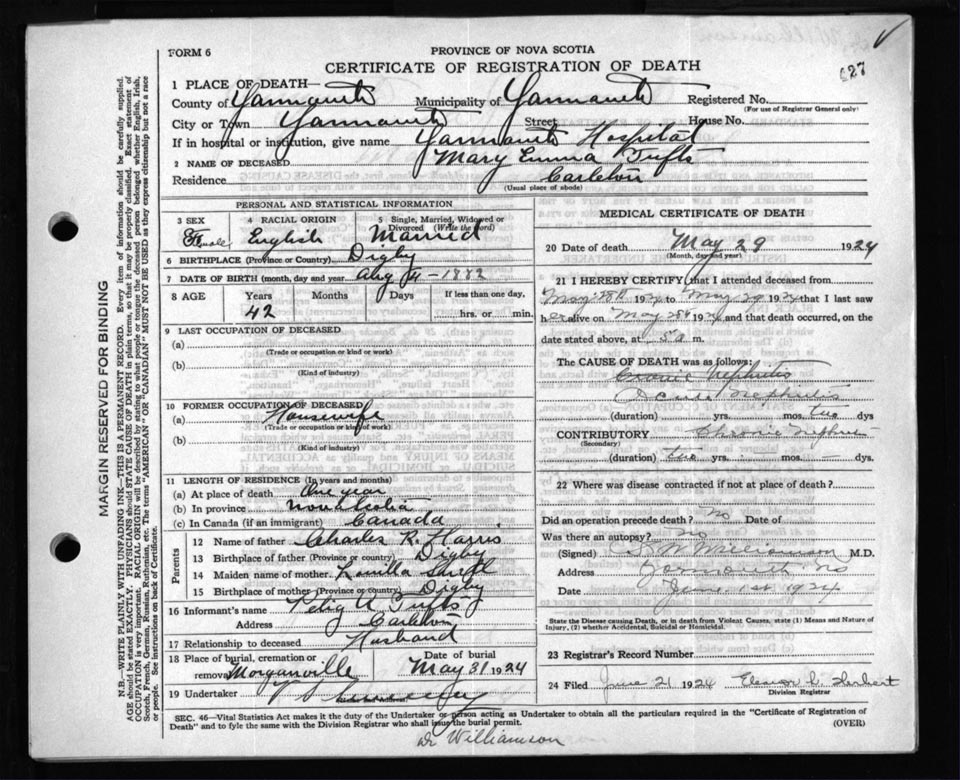 FORM 6
PROVINCE OF NOVA SCOTIA
CERTIFICATE OF REGISTRATION OF DEATH
627
1 PLACE OF DEATH—
County of Yarmouth Municipality of Yarmouth Registered No.
(For use of Registrar General only)
City or Town Yarmouth Street House No.
If in hospital or institution, give name Yarmouth Hospital
2 NAME OF DECEASED Mary Emma Tufts
Residence Carleton
(Usual place of abode)
PERSONAL AND STATISTICAL INFORMATION
3 SEX Female
4 RACIAL ORIGIN English
5 Single, Married, Widowed or Divorced (Write the word) Married
6 BIRTHPLACE (Province or Country) Digby
7 DATE OF BIRTH (month, day and year) Aug 4 - 1882
8 AGE Years Months Days If less than one day,
42 hrs. or min.
9 LAST OCCUPATION OF DECEASED
(a)
(Trade or occupation or kind or work)
(b)
(Kind of industry)
10 FORMER OCCUPATION OF DECEASED
(a) Housewife
(Trade or occupation or kind of work)
(b)
(Kind of industry)
11 LENGTH OF RESIDENCE (In years and months)
(a) At place of death One year
(b) In province Nova Scotia
(c) In Canada (if an immigrant) Canada
Parents
12 Name of father Charles R. Harris
13 Birthplace of father (Province or country) Digby
14 Maiden name of mother
15 Birthplace of mother (Province or country) Digby
16 Informant's name A Tufts
Address Carleton
17 Relationship to deceased Husband
18 Place of burial, cremation or removal Morganville
Date of burial May 31 1924
19 Undertaker
MEDICAL CERTIFICATE OF DEATH
20 Date of death May 29 1924
(Month, day and year)
21 I HEREBY CERTIFY that I attended deceased from
May 28th 1924 to May 29 1924 that I last saw
her alive on May 28th 1924 and that death occurred, on
date stated above, at 5 a m.
The CAUSE OF DEATH was as follows:
Chronic Nephritis
Acute Nephritis
(duration) yrs. mos. two dys
CONTRIBUTORY Chronic Nephritis
(Secondary)
(duration) two yrs. — mos. — dys.
22 Where was disease contracted if not at place of death?
Did an operation precede death? No Date of
Was there an autopsy? No
(Signed) Williamson M.D.
Address Yarmouth NS
Date June 1st 1924
State the Disease causing Death, or in death from Violent Causes, state (1) Means and Nature of
Injury, (2) whether Accidental, Suicidal or Homicidal.
23 Registrar's Record Number
24 Filed June 21 1924 Herbert
Division Registrar
SEC. 46—Vital Statistics Act makes it the duty of the Undertaker or person acting as Undertaker to obtain all the particulars required in the "Certificate of Registration of
Death" and to file the same with the Division Registrar who shall issue the burial permit. (OVER)
Dr Williamson
MARGIN RESERVED FOR BINDING
N.B.—WRITE PLAINLY WITH UNFADING INK—THIS IS A PERMANENT RECORD. Every item of information should be carefully supplied.
AGE should be stated EXACTLY. PHYSICIANS should STATE CAUSE OF DEATH in plain terms, so that it may be properly classified. Exact statement of
OCCUPATION is very important. RACIAL ORIGIN will be described by stating to what people or tongue the deceased person belonged whether English, Irish,
Scotch, French, German, Russian, Ruthenian, etc. The terms "AMERICAN" or "CANADIAN" MUST NOT BE USED as they express citizenship but not a race
or people. See instructions on back of Certificate.